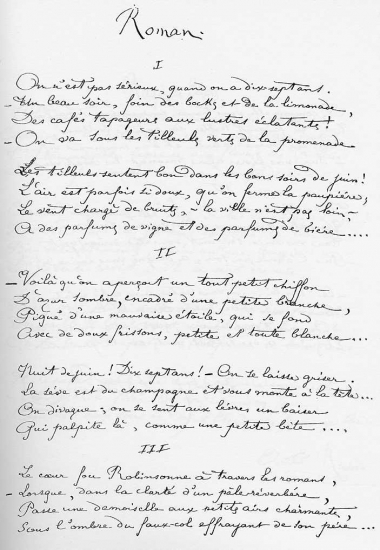 Roman.
I
On n'est pas sérieux, quand on a dix sept ans.
– Un beau soir, foin des bocks et de la limonade,
Des cafés tapageurs aux lustres éclatants!
– On va sous les tilleuls verts de la promenade
Les tilleuls sentent bon dans les bons soirs de juin!
L'air est parfois si doux, qu'on ferme la paupière;
Le vent chargé de bruits, – la ville n'est pas loin –
A des parfums de vigne et des parfums de bière....
II
– Voilà qu'on aperçoit un tout petit chiffon
D'azur sombre, encadré d'une petite branche,
Piqué d'une mauvaise étoile, qui se fond
Avec de doux frissons, petite et toute blanche...
Nuit de juin! Dix sept ans! – On se laisse griser.
La sève est du champagne et vous monte à la tête...
On divague; on se sent aux lèvres un baiser
Qui palpite là, comme une petite bête....
III
Le cœur fou Robinsonne à travers les romans,
– Lorsque, dans la clarté d'un pâle réverbère,
Passe une demoiselle aux petits airs charmants,
Sous l'ombre du faux-col effrayant de son père...